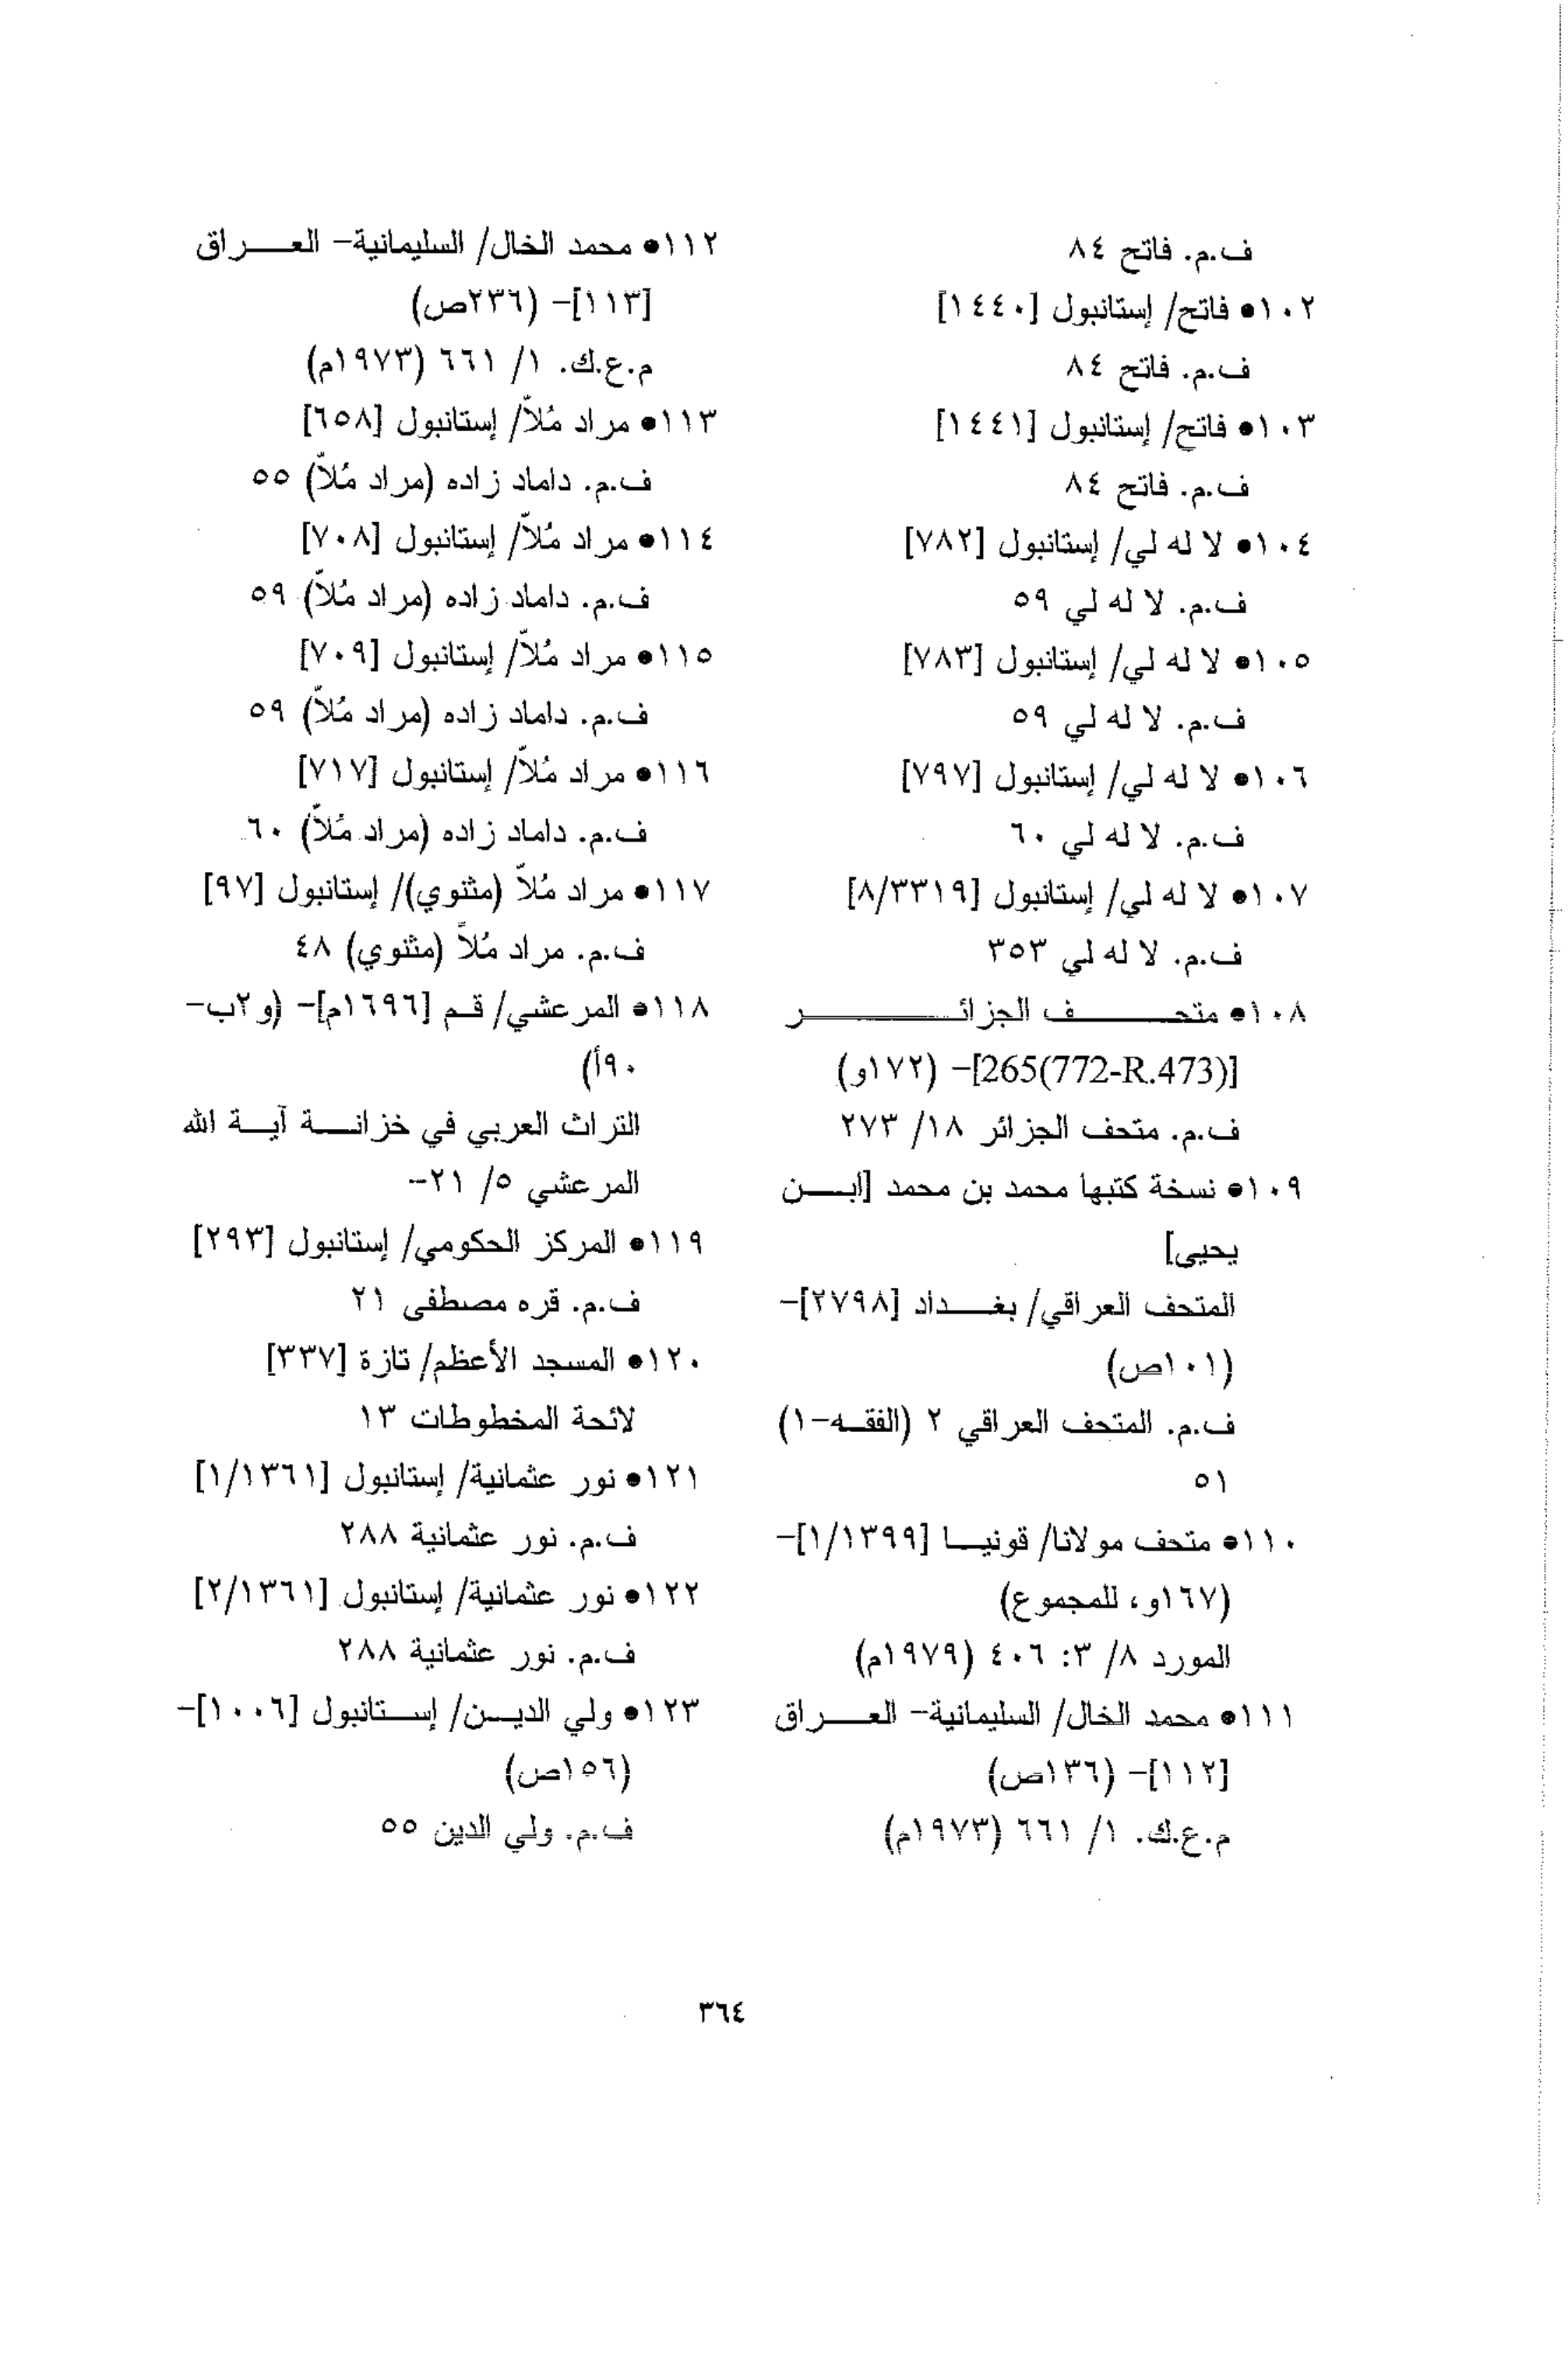 ف.م. فاتح ٨٤
١٠٢● فاتح/ إستانبول [١٤٤٠]
ف.م. فاتح ٨٤
١٠٣● فاتح/ إستانبول [١٤٤١]
ف.م. فاتح ٨٤
١٠٤● لا له لي/ إستانبول [٧٨٢]
ف.م. لا له لي ٥٩
١٠٥● لا له لي/ إستانبول [٧٨٣]
ف.م. لا له لي ٥٩
١٠٦● لا له لي/ إستانبول [٧٩٧]
ف.م. لا له لي ٦٠
١٠٧● لا له لي/ إستانبول [٨/٣٣١٩]
ف.م. لا له لي ٣٥٣
١٠٨● متحف الجزائر
[265(772-R.473)]– (١٧٢و)
ف.م. متحف الجزائر ١٨/ ٢٧٣
١٠٩● نسخة كتبها محمد بن محمد [ابن
يحيى]
المتحف العراقي/ بغداد [٢٧٩٨]–
(١٠١ص)
ف.م. المتحف العراقي ٢ (الفقه–١)
٥١
١١٠● متحف مولانا/ قونيا [١/١٣٩٩]–
(١٦٧و، للمجموع)
المورد ٨/ ٣: ٤٠٦ (١٩٧٩م)
١١١● محمد الخال/ السليمانية– العراق
[١١٢]– (١٣٦ص)
م.ع.ك. ١/ ٦٦١ (١٩٧٣م)
١١٢● محمد الخال/ السليمانية– العراق
[١١٣]– (٢٣٦ص)
م.ع.ك. ١/ ٦٦١ (١٩٧٣م)
١١٣● مراد مُلاّ/ إستانبول [٦٥٨]
ف.م. داماد زاده (مراد مُلاّ) ٥٥
١١٤● مراد مُلاّ/ إستانبول [٧٠٨]
ف.م. داماد زاده (مراد مُلاّ) ٥٩
١١٥● مراد مُلاّ/ إستانبول [٧٠٩]
ف.م. داماد زاده (مراد مُلاّ) ٥٩
١١٦● مراد مُلاّ/ إستانبول [٧١٧]
ف.م. داماد زاده (مراد مُلاّ) ٦٠
١١٧● مراد مُلاّ (مثنوي)/ إستانبول [٩٧]
ف.م. مراد مُلاّ (مثنوي) ٤٨
١١٨● المرعشي/ قم [١٦٩٦م]– (و٢ب–
٩٠أ)
التراث العربي في خزانة آية الله
المرعشي ٥/ ٢١–
١١٩● المركز الحكومي/ إستانبول [٢٩٣]
ف.م. قره مصطفى ٢١
١٢٠● المسجد الأعظم/ تازة [٣٣٧]
لائحة المخطوطات ١٣
١٢١● نور عثمانية/ إستانبول [١/١٣٦١]
ف.م. نور عثمانية ٢٨٨
١٢٢● نور عثمانية/ إستانبول [٢/١٣٦١]
ف.م. نور عثمانية ٢٨٨
١٢٣● ولي الدين/ إستانبول [١٠٠٦]–
(١٥٦ص)
ف.م. ولي الدين ٥٥
٣٦٤